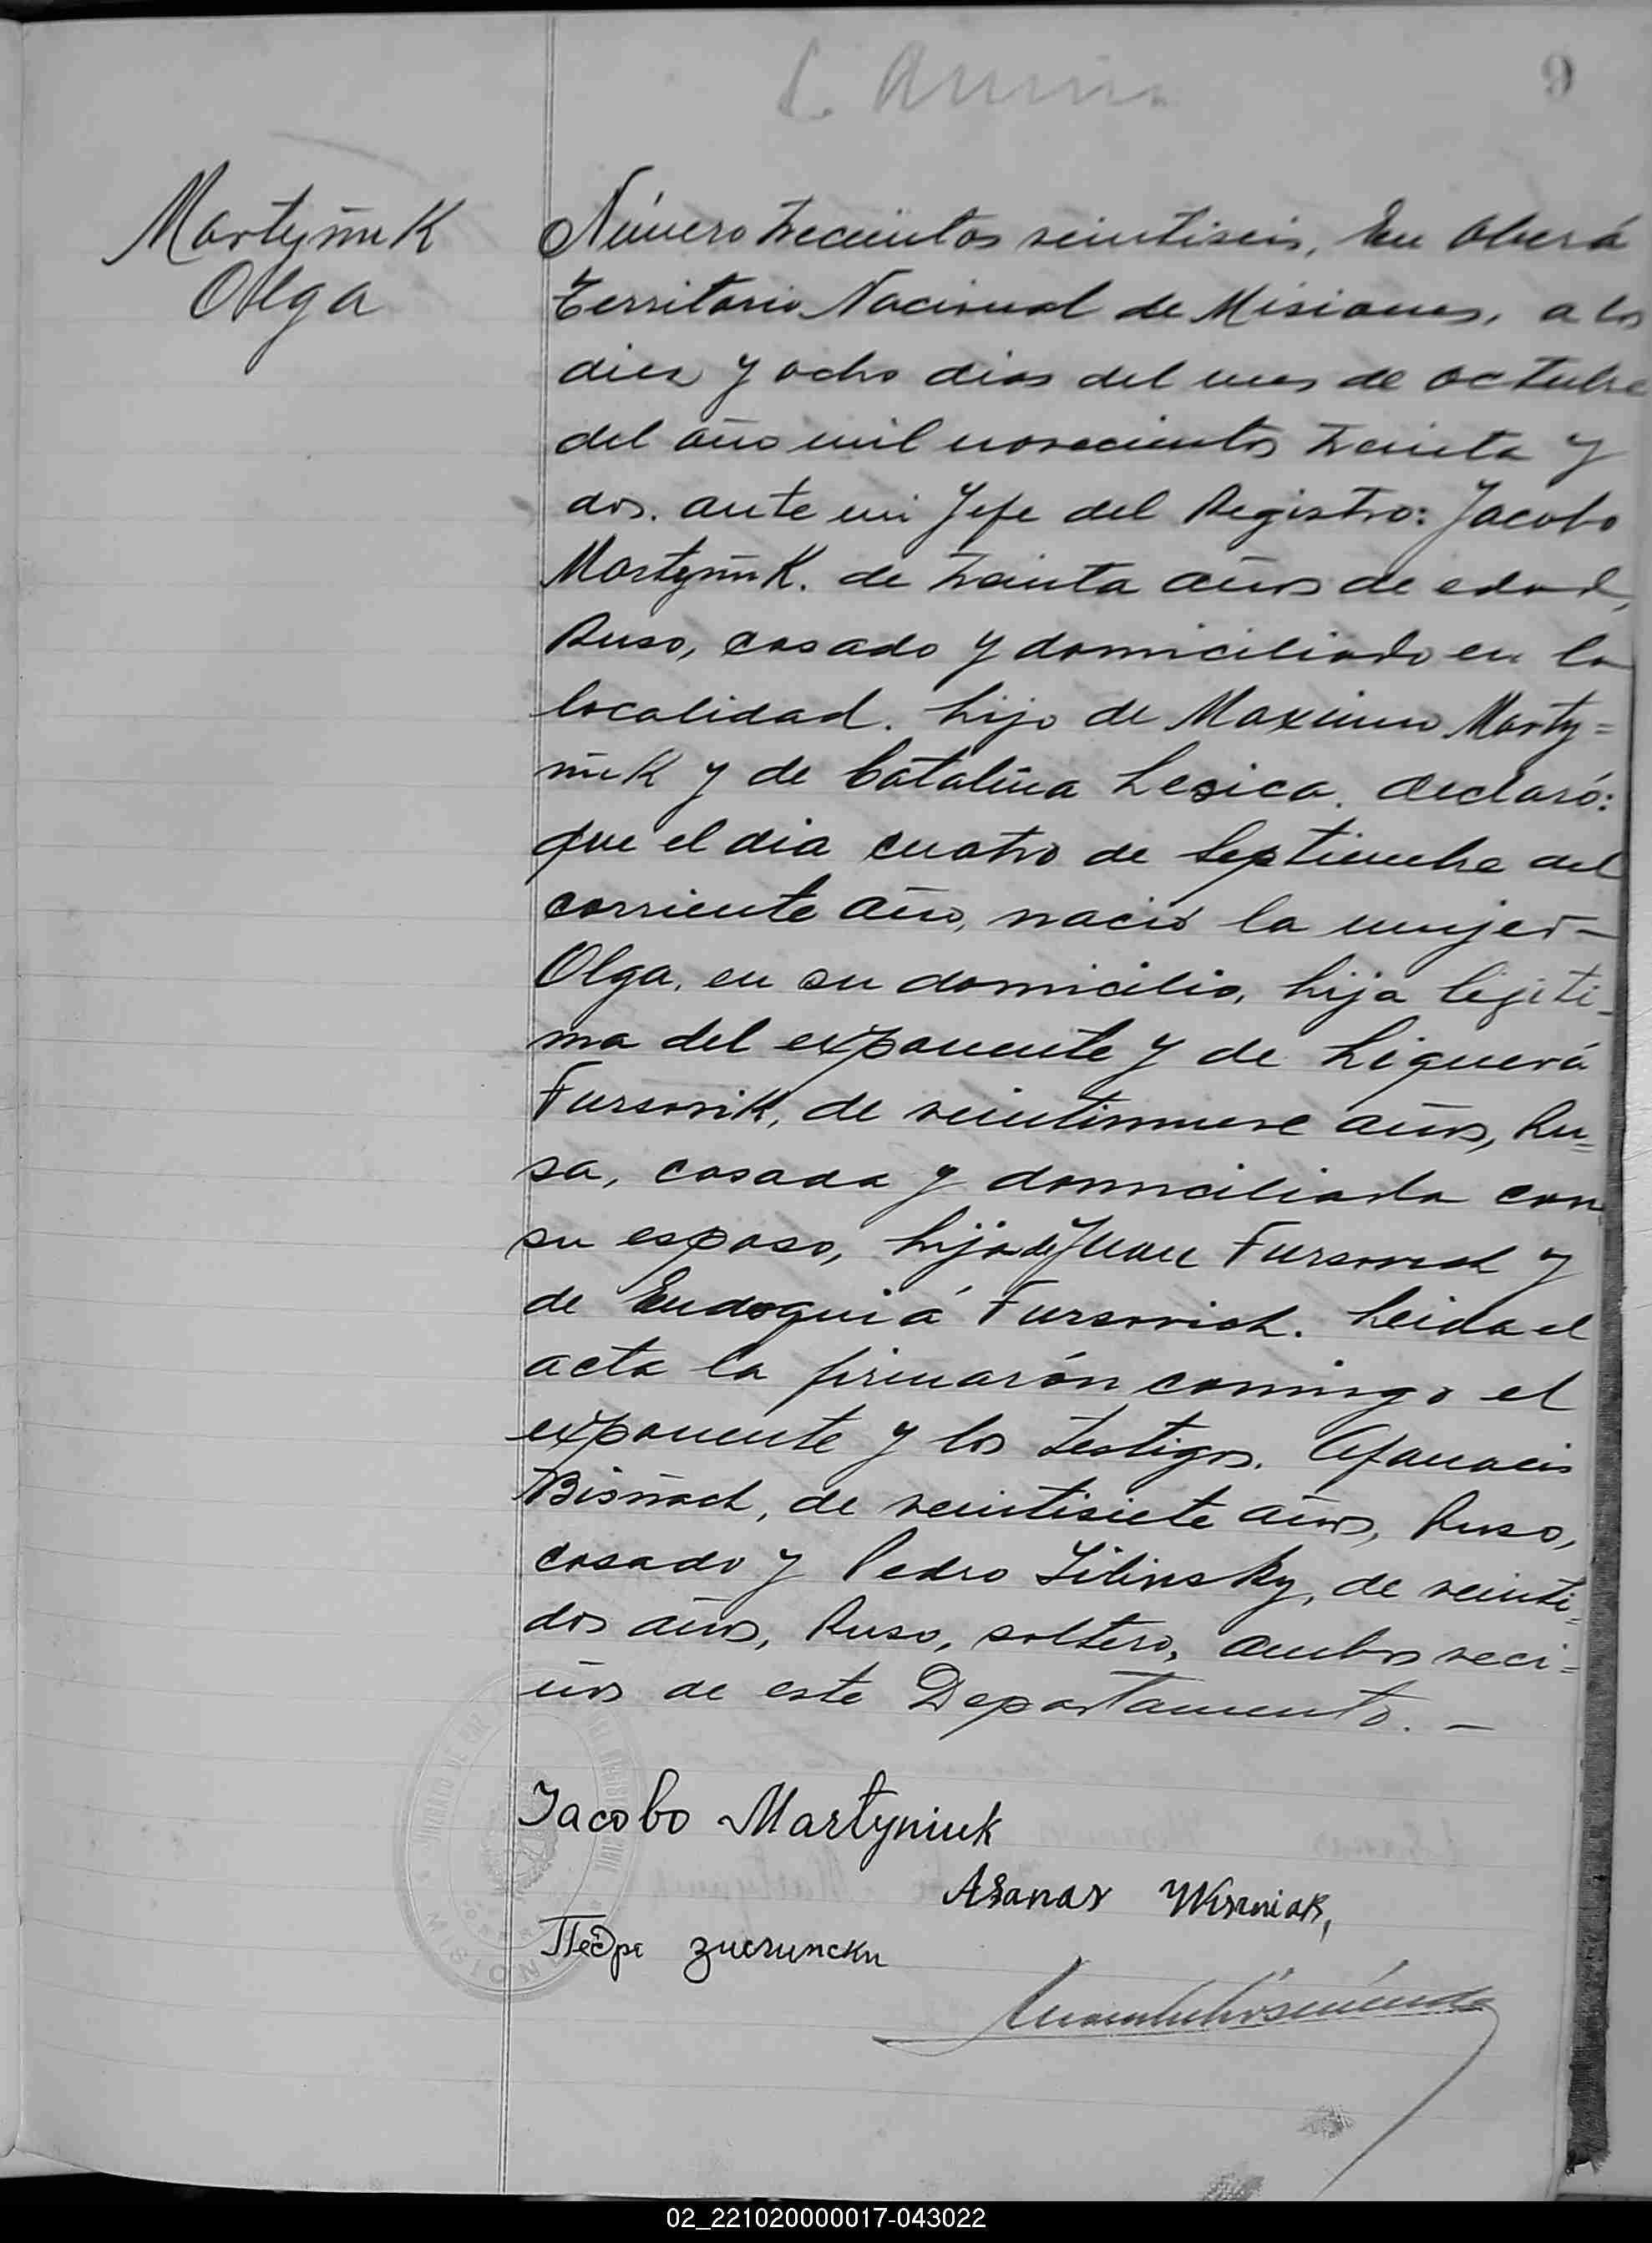 9
Martyniuk
Olga
Número trecientos veintiseis, En Oberá
Territorio Nacional de Misiones, a los
diez y ocho dias del mes de octubre
del año mil novecientos treinta y
dos. ante mi Jefe del Registro: Jacobo
Martyñuk. de treinta años de edad,
Ruso, casado y domiciliado en la
localidad. hijo de Maximo Marty=
ñuk y de Catalina Lesica. declaró:
que el dia cuatro de Septiembre del
corriente año, nació la mujer-
Olga, en su domicilio, hija legiti-
ma del exponente y de Liquerá
Fursovik, de veintinueve años, Ru=
sa, casada y domiciliada con
su esposo, hija de Juan Fursovich y
de Eudoquiá Fursovich. Leida el
acta la firmarón conmigo el
exponente y los testigos. Afanacis
Bisñach, de veintisiete años, Ruso,
casado y Pedro Zilinsky, de veinti=
dos años, Ruso, soltero, ambos veci=
nos de este Departamento. -
Jacobo Martyniuk
Afanas Wiszniak,
Педре зилински
JUZGADO DE PAZ
MISIONES
02_221020000017-043022